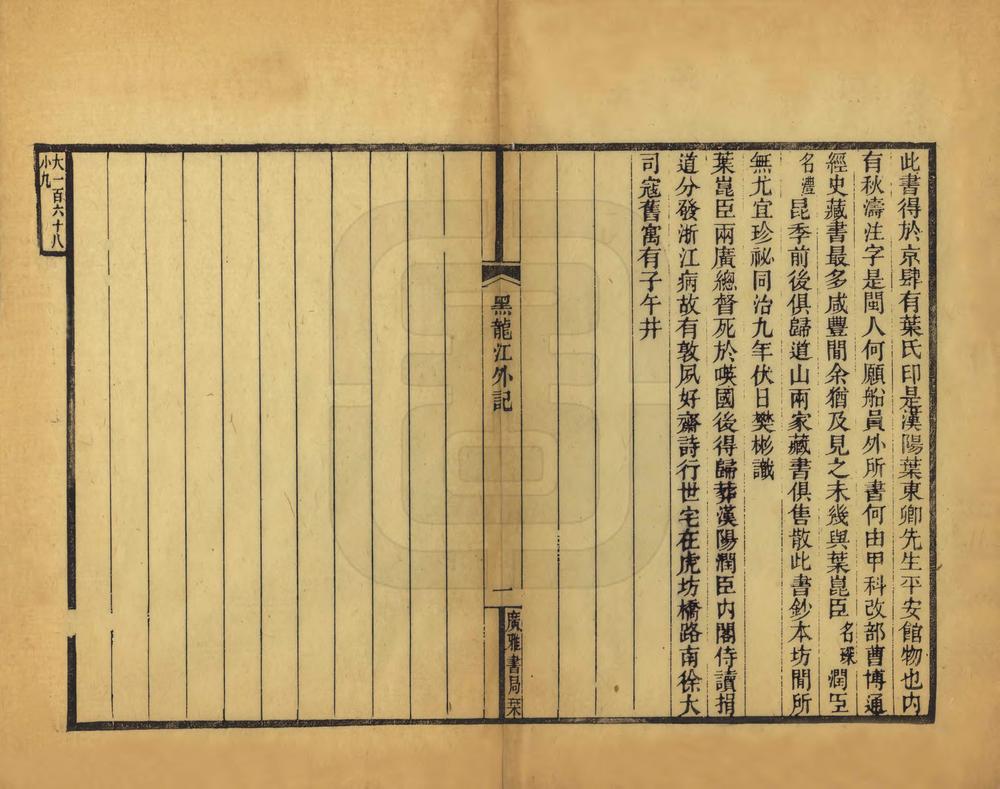 此書得於京肆有葉氏印是漢陽葉東卿先生平安館物也内
有秋濤注字是閩人何願船員外所書何由甲科改部曹博通
經史藏書最多咸豐間余猶及見之未幾與葉崑臣名琛潤臣
名灃昆季前後俱歸道山兩家藏書俱售散此書鈔本坊間所
無尤宜珍祕同治九年伏日樊彬識
葉崑臣兩廣總督死於嘆國後得歸葬漢陽潤臣内閣侍讀捐
道分發浙江病故有敦夙好齋詩行世宅在虎坊橋路南徐大
司寇舊寓有子午井
黑龍江外記
一
廣雅書局栞
大一百六十八
小九